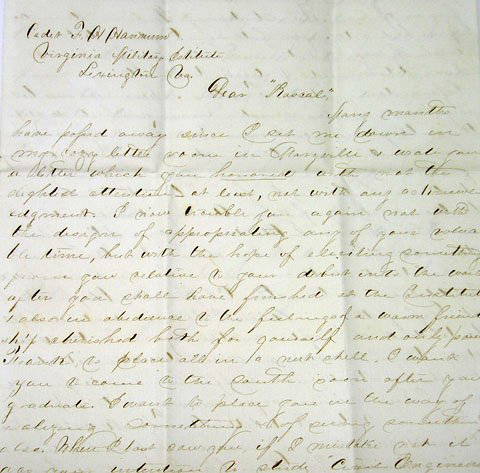 Cadet F. H. Hannum
Virginia Military Institute
Lexington Va.
Dear "Rascal",
Many months
have passed away since I set me down in
my cozy little room in Maryville & wrote you
a letter which you honored with not the
slightest attention, at least, not with any acknowl
edgment. I now trouble you again not with
the design of appropriating any of your valua
ble time, but with the hope of eliciting something
from you relative to your debut into the world
after you shall have finished at the Institute
& also in obedience to the feelings of a warm friend
ship cherished both for yourself and only
Frank, to place all in a nut shell. I want
you to come to the South soon after you
graduate. I want to place you in the way of
realizing something & of seeing something
else. When I last saw you, if I mistake not it
was your intention to study "Civil Engineer